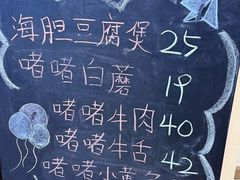 海胆豆腐煲 25
啫啫白蘑 19
啫啫牛肉 40
啫啫牛舌 42
啫啫小黄鱼